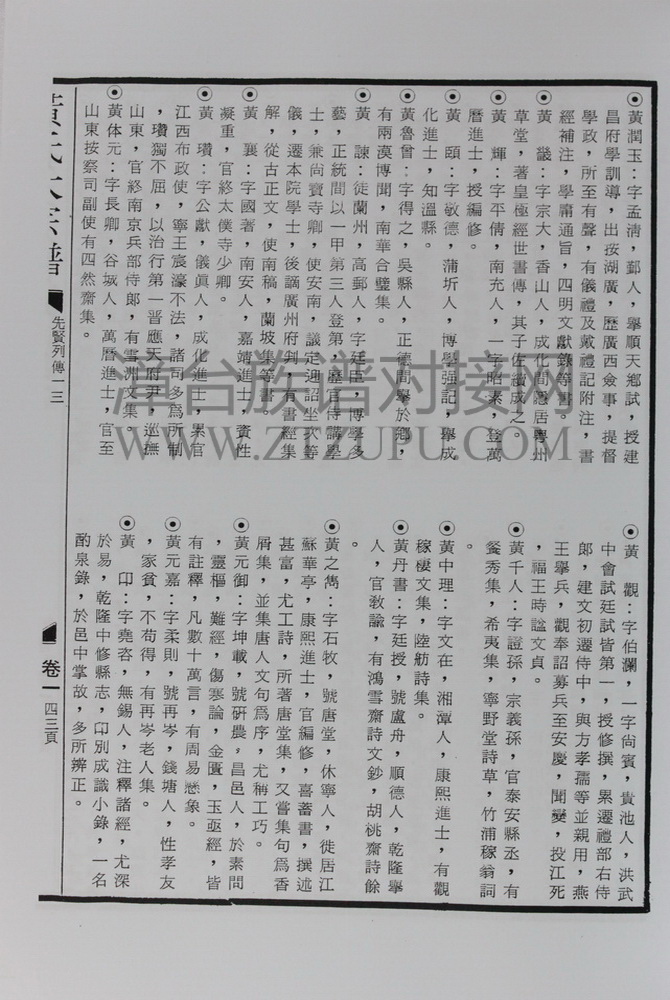 ⊙黃潤玉：字孟清，鄞人，舉順天鄉試，授建
昌府學訓導，出按湖廣，歷廣西僉事，提督
學政，所至有聲，有儀禮及戴禮記附注，書
經補注，學庸通旨，四明文獻錄等書。
⊙黃　畿：字宗大，香山人，成化間隱居粵州
草堂，著皇極經世書傳，其子佐續成之。
⊙黃　輝：字平倩，南充人，一字昭素，登萬
曆進士，授編修。
⊙黃　頤：字敬德，蒲圻人，博學强記，舉成
化進士，知溫縣。
⊙黃魯曾：字得之，吳縣人，正德間舉於鄉，
有兩漠博聞，南華合璧集。
⊙黃　諫：徒蘭州，高郵人，字廷臣，博學多
藝，正統間以一甲第三人登第，歷官侍講學
士，兼尚寶寺卿，使安南，議定迎詔坐次等
儀，遷本院學士，後謫廣州府判，有書經集
解，從古正文，使南稿，蘭坡集等書。
⊙黃　襄：字國著，南安人，嘉靖進士，資性
凝重，官終太僕寺少卿。
⊙黃　瓚：字公獻，儀眞人，成化進士，累官
江西布政使，寧王宸濠不法，諸司多爲所制
，瓚獨不屈，以治行第一晋應天府尹，巡撫
山東，官終南京兵部侍郞，有雪洲文集。
⊙黃体元：字長卿，谷城人，萬曆進士，官至
山東按察司副使有四然齋集。
⊙黃　觀：字伯瀾，一字尙賓，貴池人，洪武
中會試廷試皆第一，授修撰，累遷禮部右侍
郞，建文初遷侍中，與方孝孺等並親用，燕
王舉兵，觀奉詔募兵至安慶，聞變，投江死
，福王時謚文貞。
⊙黃千人：字證孫，宗義孫，官泰安縣丞，有
餐秀集，希夷集，寧野堂詩草，竹浦稼翁詞
。
⊙黃中理：字文在，湘潭人，康熙進士，有觀
稼樓文集，陸舫詩集。
⊙黃丹書：字廷授，號虛舟，順德人，乾隆舉
人，官敎諭，有鴻雪齋詩文鈔，胡桃齋詩餘
。
⊙黃之雋：字石牧，號唐堂，休寧人，徙居江
蘇華亭，康熙進士，官編修，喜蓄書，撰述
甚富，尤工詩，所著唐堂集，又嘗集句爲香
屑集，並集唐人文句爲序，尤稱工巧。
⊙黃元御：字坤載，號硏農，昌邑人，於素問
，靈樞，難經，傷寒論，金匱，玉亟經，皆
有註釋，凡數十萬言，有周易懸象。
⊙黃元嘉：字柔則，號再岑，錢塘人，性孝友
，家貧，不苟得，有再岑老人集。
⊙黃　卬：字堯咨，無錫人，注釋諸經，尤深
於易，乾隆中修縣志，卬別成識小錄，一名
酌泉錄，於邑中掌故，多所辨正。
先賢列傳一三
卷一
四三頁
漳台族谱对接网
WWW.ZTZUPU.COM